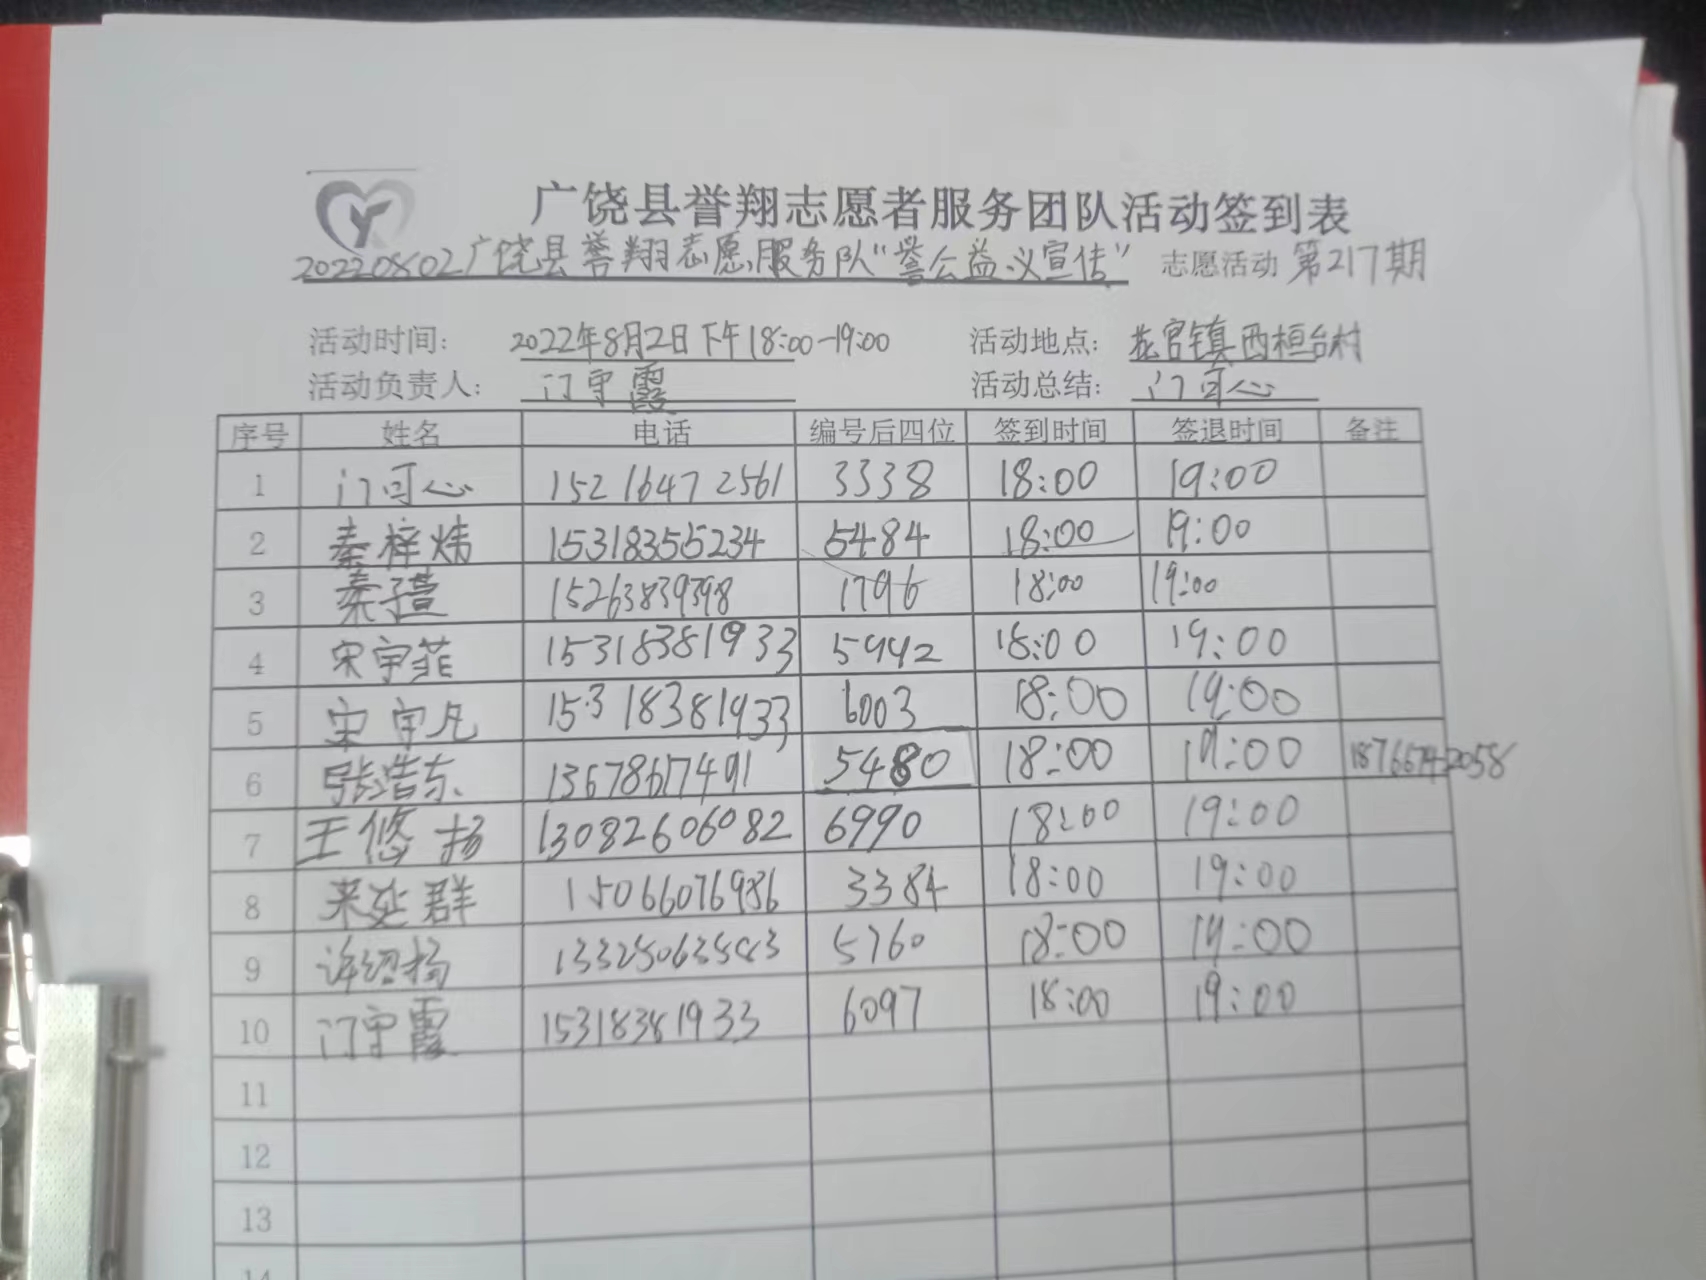 广饶县誉翔志愿者服务团队活动签到表
20220802广饶县誉翔志愿服务队“誉公益·义宣传” 志愿活动 第217期
活动时间: 2022年8月2日下午18:00-19:00 活动地点: 花官镇西桓台村
活动负责人: 门守霞 活动总结: 门可心
序号 姓名 电话 编号后四位 签到时间 签退时间 备注
1 门可心 15216472561 3338 18:00 19:00
2 秦梓炜 15318355234 5484 18:00 19:00
3 秦子萱 15263839398 1796 18:00 19:00
4 宋宇菲 15318381933 5942 18:00 19:00
5 宋宇凡 15318381933 6003 18:00 19:00
6 张浩东 13678617491 5480 18:00 19:00 18766742058
7 王悠扬 13082606082 6990 18:00 19:00
8 来延群 15066076986 3384 18:00 19:00
9 许绍扬 5760 18:00 19:00
10 门守霞 15318381933 6097 18:00 19:00
11
12
13
14